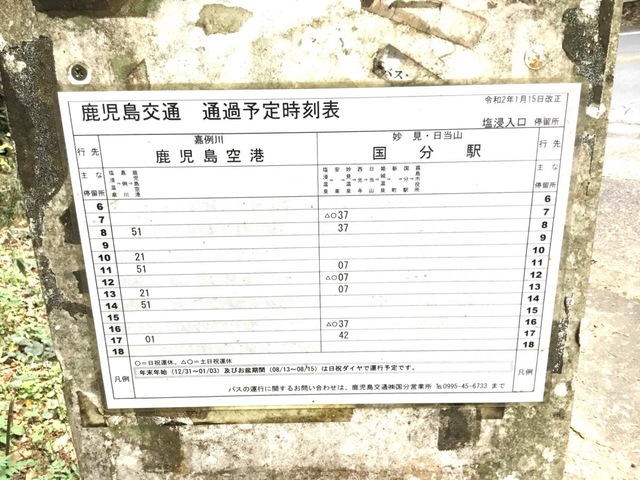 バス
令和2年1月15日改正
鹿児島交通 通過予定時刻表
塩浸入口 停留所
行先 嘉例川 鹿児島空港 妙見・日当山 国分駅 行先
主な停留所 主な停留所
6 6
7 △○37 7
8 51 37 8
9 9
10 21 10
11 51 07 11
12 △○07 12
13 21 07 13
14 51 14
15 15
16 △○37 16
17 01 42 17
18 18
凡例 ○=日祝運休、△○=土日祝運休 凡例
年末年始(12/31~01/03)及びお盆期間(08/13~08/15)は日祝ダイヤで運行予定です。
バスの運行に関するお問い合わせは、鹿児島交通㈱国分営業所 ℡0995-45-6733 まで